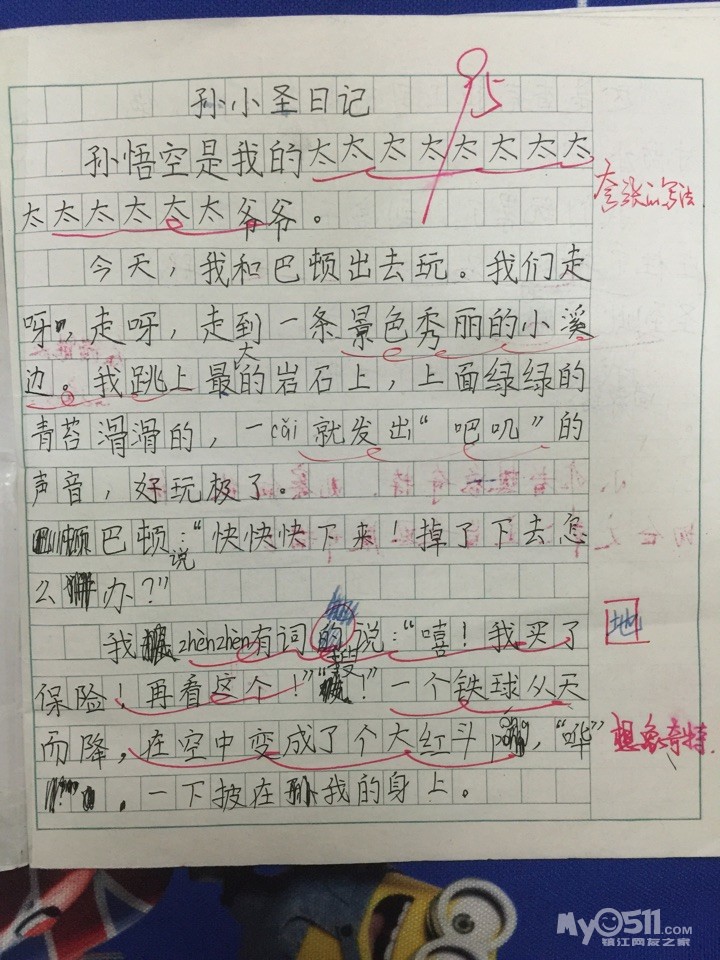 孙小圣日记
95
孙悟空是我的太太太太太太太太
夸张的写法
太太太太太太太爷爷。
今天，我和巴顿出去玩。我们走
呀，走呀，走到一条景色秀丽的小溪
边。我跳上最大的岩石上，上面绿绿的
青苔滑滑的，一cǎi就发出“吧叽”的
声音，好玩极了。
巴顿说：“快快快下来！掉了下去怎
么办？”
我zhènzhèn有词的说：“嘻！我买了
地
保险！再看这个！”“嗖！”一个铁球从天
而降，在空中变成了个大红斗，“哗”
想象奇特
，一下披在我的身上。
My0511.com
镇江网友之家